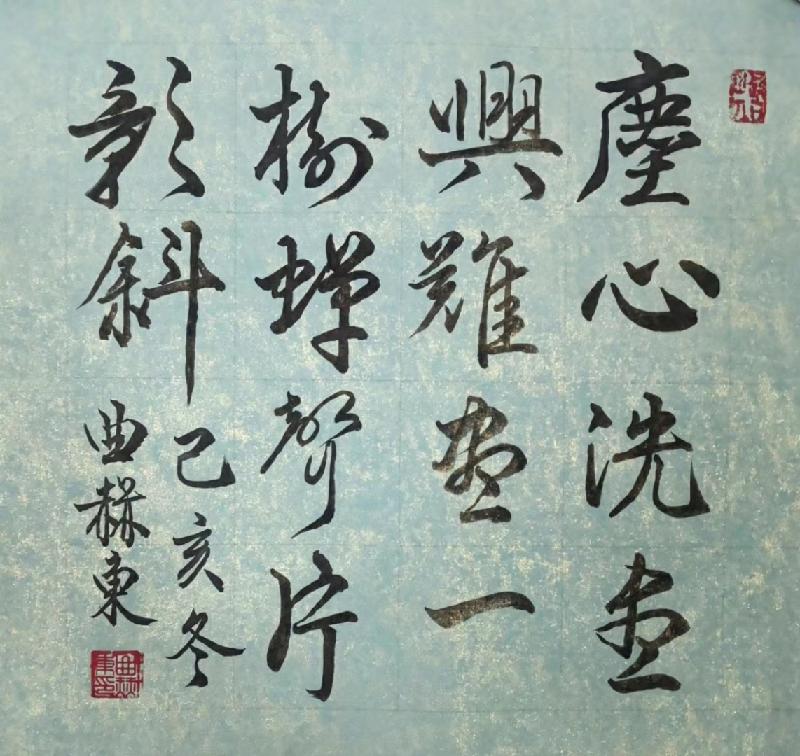 塵心洗盡
興難盡一
樹蟬聲片
影斜
己亥冬
曲東